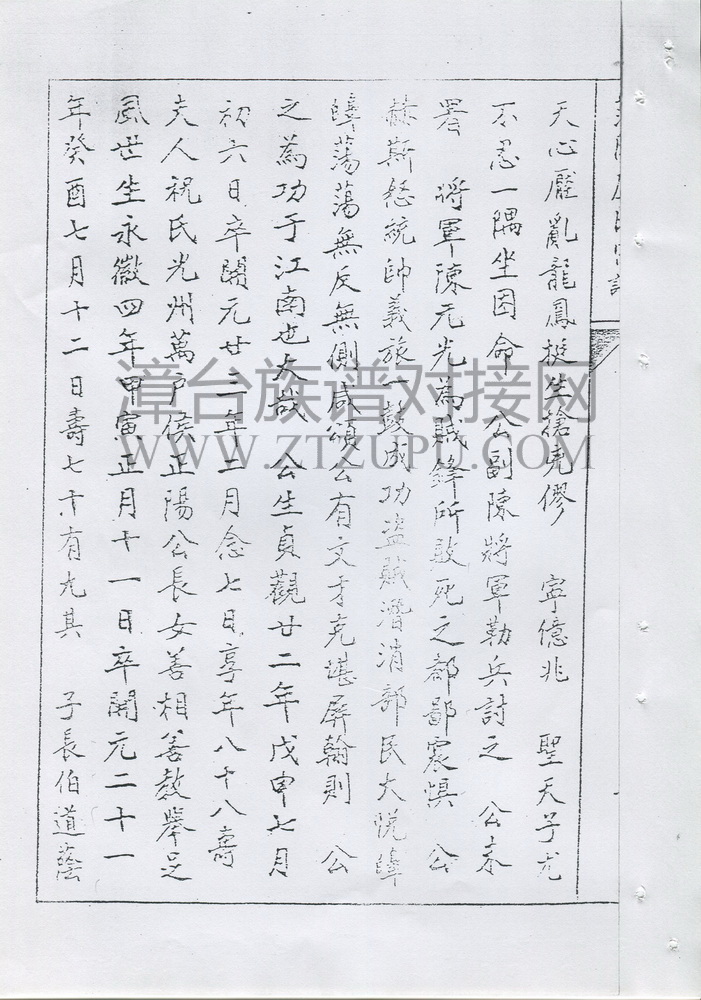 天心厭亂龍鳳挺生搶堯僇　寧億兆　聖天子尤
不忍一隅坐因命　公副陳將軍勒兵討之　公奉
將軍陳元光為賊鋒所敗死之都鄙震惧　公
赫斯怒統帥義旅一鼓成功盗賊潛消部民大悦皡
皡蕩蕩無反無側咸頌公有文才克堪屏翰則　公
之為功于江南也大哉　公生貞觀廿二年戊申七月
初六日卒開元廿三年二月念七日享年八十八壽
夫人祝氏光州萬戸侯正陽公長女善相善教舉足
風世生永徽四年甲寅正月十一日卒開元二十一
年癸酉七月十二日壽七十有九其　子長伯道蔭
漳台族谱对接网
WWW.ZTZUPU.COM